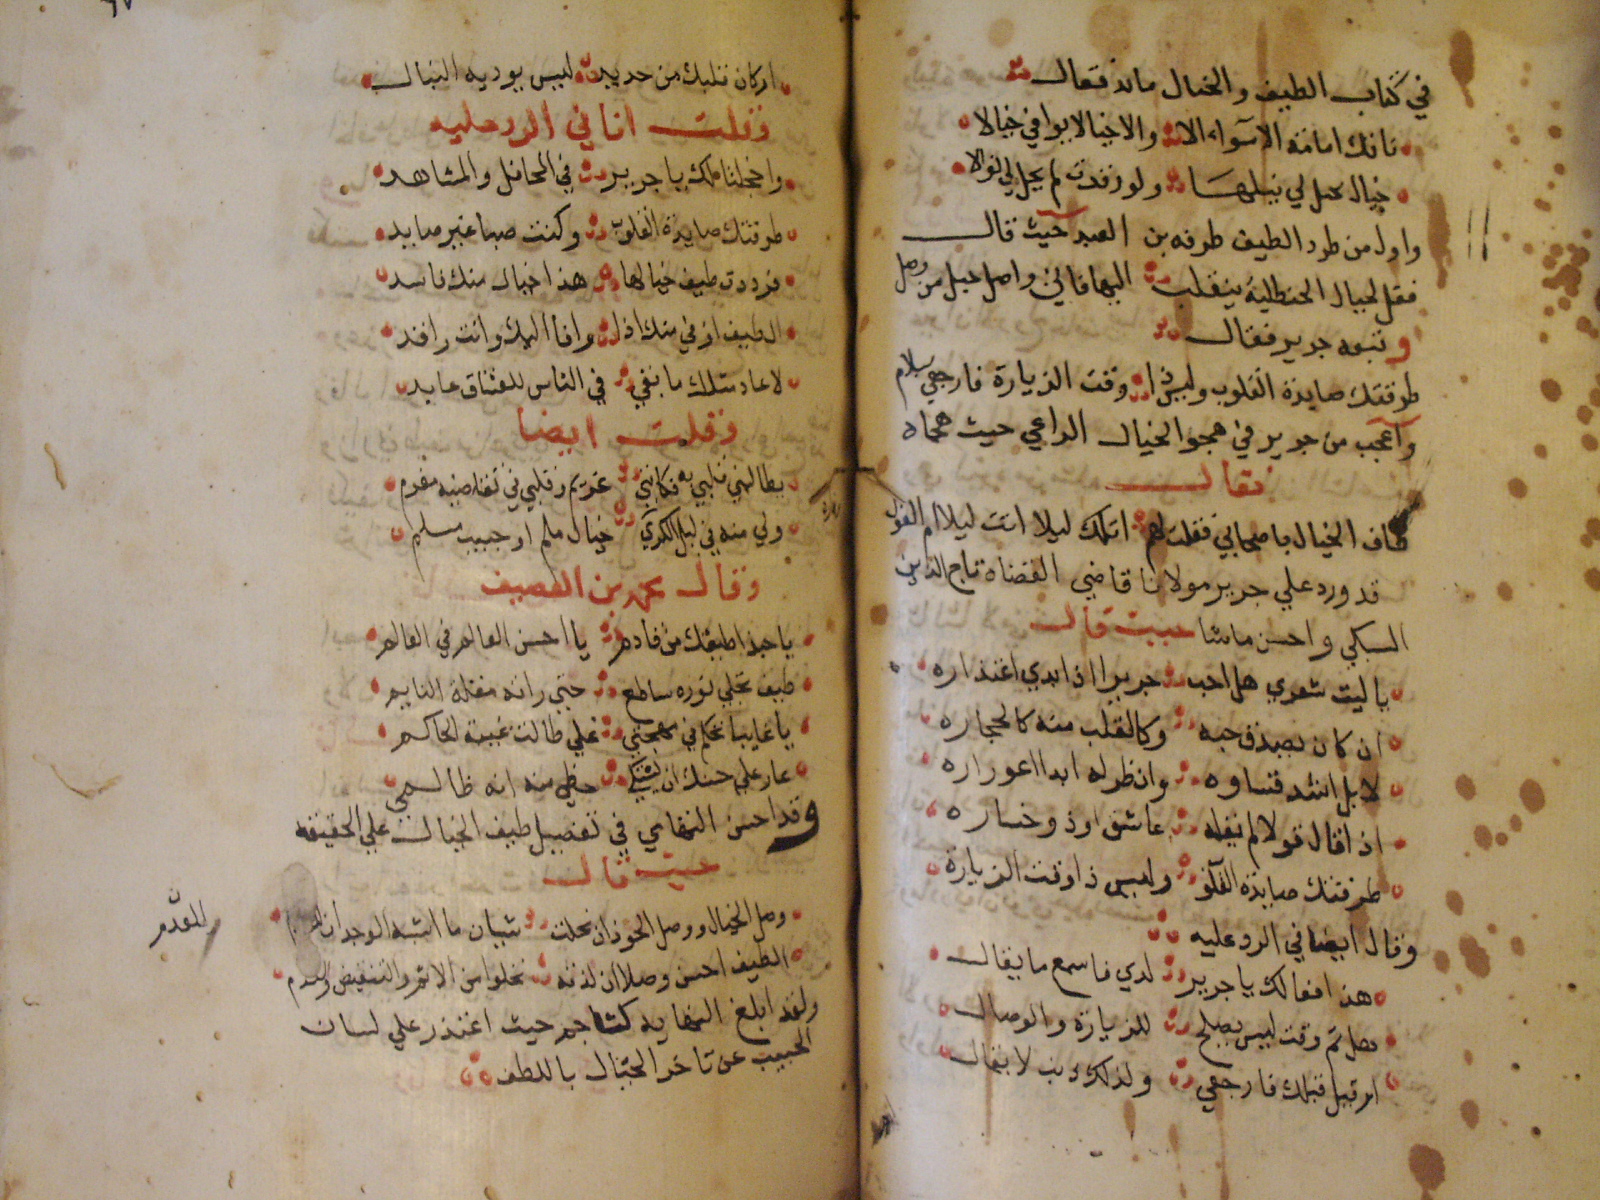 في كتاب الطيف والخيال ما نه فقال
نانك امامة الا سواه الا والا خيالا يوافي خيالا
خيال يخيل لي نيلها ولو زفدت لم يخل لي نوالا
واول من طرد الطيف طرفه بن العبد حيث قال
فقل لخيال الحنظلية ينقلب اليها فاني واصل حبل من وصل
وتبعه جرير فقال
طرقتك صايدة القلوب وليس ذا وقت الزيارة فارجعي بسلام
واعجب من جرير في هجو الخيال الراعي حيث هجاه
فقال
طاف الخيال باصحابي فقلت لهم اتلك ليلا اتت ليلا ام الغول
قد ورد علي جرير مولانا قاضي القضاة تاج الدين
السبكي واحسن ماشا حيث قال
يا ليت شعري هل احب جريرا اذ ابدي اعتذاره
ان كان يصدف حبه وكالقلب منه كالحجاره
لا بل اشد قساوه وانظر له ابدا اعوراره
اذ قال قولا لم يقله عاشق اوذو خساره
طرقتك صايدة القلو وليس ذا وقت الزيارة
وقال ايضا في الرد عليه
هذا فعالك يا جرير لدي فاسمع ما يقال
هل ثم وقت ليس يصلح للزيارة والوصال
ام قيل قبلك فارجعي ولذلك ذنب لا يقال
ام كان قلبك من حديد ليس يوديه النبال
وقلت انا في الرد عليه
واخجلنا منك يا جرير في المحافل والمشاهد
طرقتك صايدة القلوب وكنت صبا غير صايد
فرددت طيف خيالها هذا خيال منك فاسد
الطيف اوفي منك اذ وافا اليك وانت راقد
لا عاد مثلك ما بقي في الناس للعشاق عايد
وقلت ايضا
يطالبني قلبي به فكانني غريم وقلبي في تقاضيه مغرم
ولي منه في ليل الكري خيال ملم او حبيب مسلم
وقال محمد بن العفيف
يا حبذا طيفك من قادم يا احسن العالم في العالم
طيف تجلي نوره ساطع حتي راته مقلة النايم
يا غايبا يحكم في مهجتي علي طالت غيبة الحاكم
عار علي حسنك ان يشتكي حظي منه انه ظالمي
وقد احسن التهامي في تفضيل طيف الخيال علي الحقيقه
حيث قال
وصل الخيال ووصل الخود ان بخلت سيان ما اشبه الوجدان
للعدم
الطيف احسن وصلا ان لذته تخلوا من الاثم والتنغيص والندم
ولقد ابلغ النهايه كشاجم حيث اعتذر علي لسان
الحبيب عن تاخر الخيال باللطف